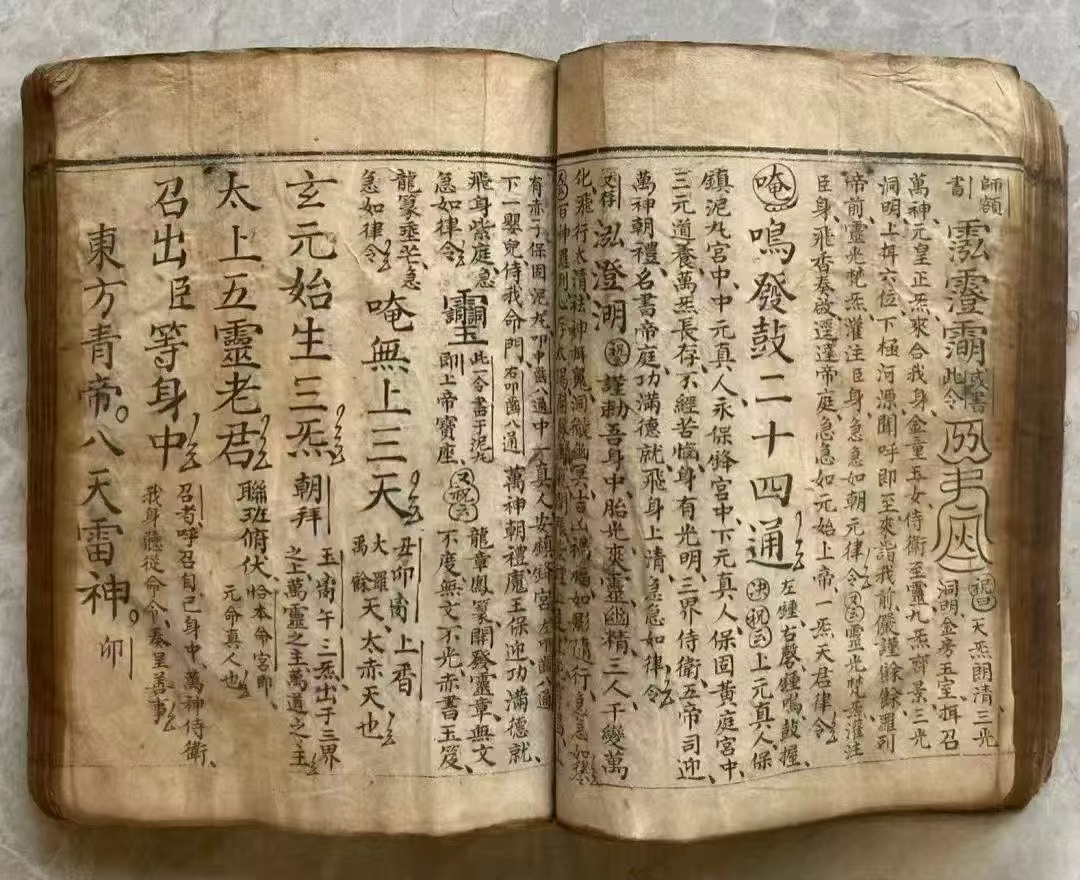 師額
書
澄 或書此令 祝曰 天炁朗清三光
洞明金房玉室揖召
萬神元皇正炁來合我身金童玉女侍衛至靈九炁齊景三光
洞明上揖六位下極河源聞呼即至來詣我前儼謹餘餘羅列
帝前靈光梵炁灌注臣身急急如朝元律令 又云 靈光梵炁灌注
臣身飛香奏啟逕達帝庭急急如元始上帝一炁天君律令
唵鳴發鼓二十四通 左鍾右磬鍾鳴鼓握
決祝云 上元真人保
鎮泥丸宮中中元真人永保絳宮中下元真人保固黃庭宮中
三元道養萬炁長存不經苦惱身有光明三界侍衛五帝司迎
萬神朝禮名書帝庭功滿德就飛身上清急急如律令
又存 泓澄渊 祝 謹勅吾身中胎光爽靈幽精三人千變萬
化飛行太清袪神揖鬼洞微幽冥吉凶禍福如影隨行急急如律令
有赤子保固泥丸 叩中齒通中 真人安鎮絳宮 左叩齒通
下一嬰兒侍我命門 右叩齒八通 萬神朝禮魔王保迎功滿德就
飛身紫庭急
急如律令 此一令書于泥丸
即上帝寶座 又祝云 龍章鳳篆開發靈章無文
不度無文不光赤書玉笈
龍篆垂芒急
急如律令 唵無上三天 丑卯离上香
大羅天太赤天也
禹餘
玄元始生三炁 朝拜 玉离午三炁出于三界
之上萬靈之主萬道之主
太上五靈老君 聯班俯伏 恰本命宮即
元命真人也
召出臣等身中 召者呼召自己身中萬神侍衛
我身聽從命令奏呈善事
東方青帝八天雷神 卯